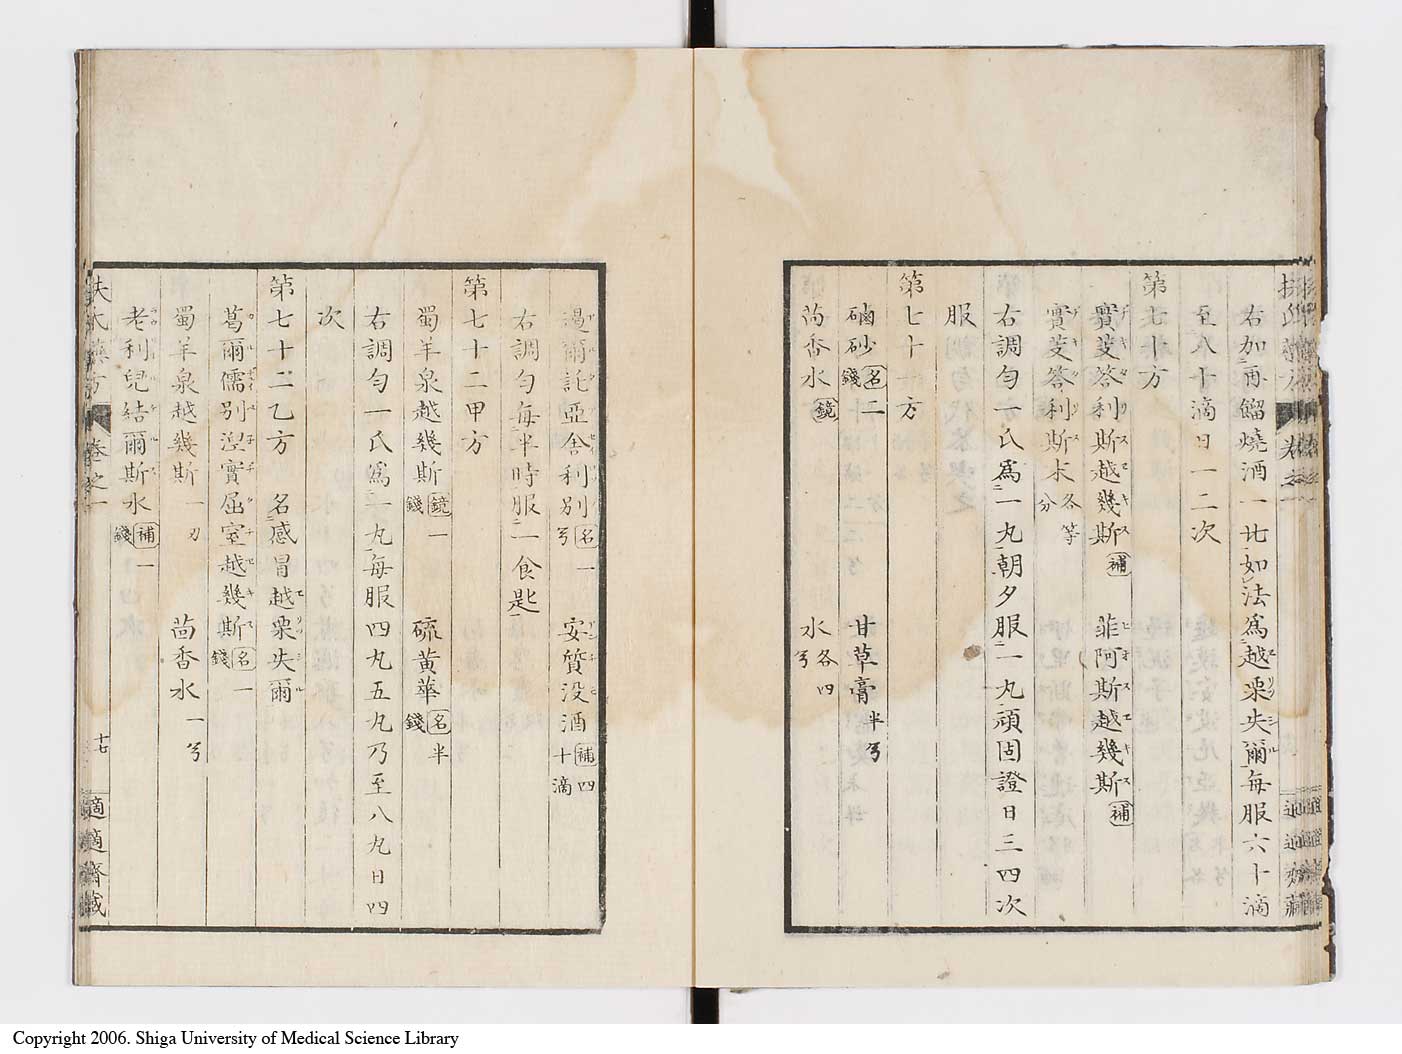 右加再餾燒酒一十如法爲越栗失爾每服六十滴
至八十滴日一二次
第七十方
實芰答利斯越幾斯補 菲阿斯越幾斯補
實芰答利斯末各等分
右調勻一氏爲一丸朝夕服一丸頑固證日三四次
服
第七十一方
磠砂名二錢 甘草膏半兮
茴香水鏡 水各四兮
扶氏藥方 卷之一 十七 適適齋藏
遏爾託亞舍利別名一兮 安質没酒補四十滴
右調勻每半時服一食匙
第七十二甲方
蜀羊泉越幾斯鏡一錢 硫黃華名半錢
右調勻一氏爲一丸每服四丸五丸乃至八丸日四
次
第七十二乙方 名感冒越栗失爾
葛爾儒別涅實屈室越幾斯名一錢
蜀羊泉越幾斯一刃 茴香水一兮
老利兒結爾斯水補一錢
Copyright 2006. Shiga University of Medical Science Library